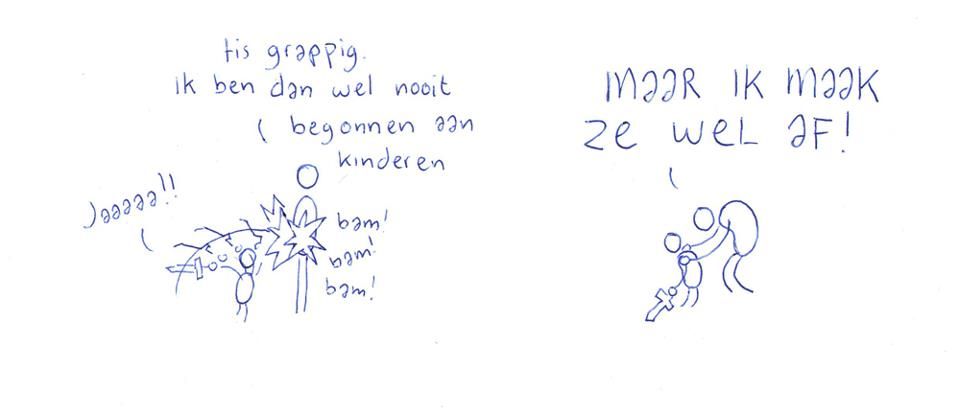 tis grappig.
ik ben dan wel nooit
begonnen aan
kinderen
Jaaaaa!!
bam!
bam!
bam!
MAAR IK MAAK
ZE WEL AF!